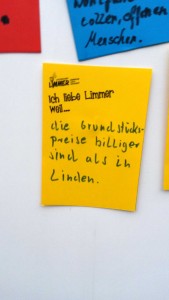 offenen
Menschen.
LIMMER
Ich liebe Limmer
weil...
die Grundstücks-
preise billiger
sind als in
Linden.